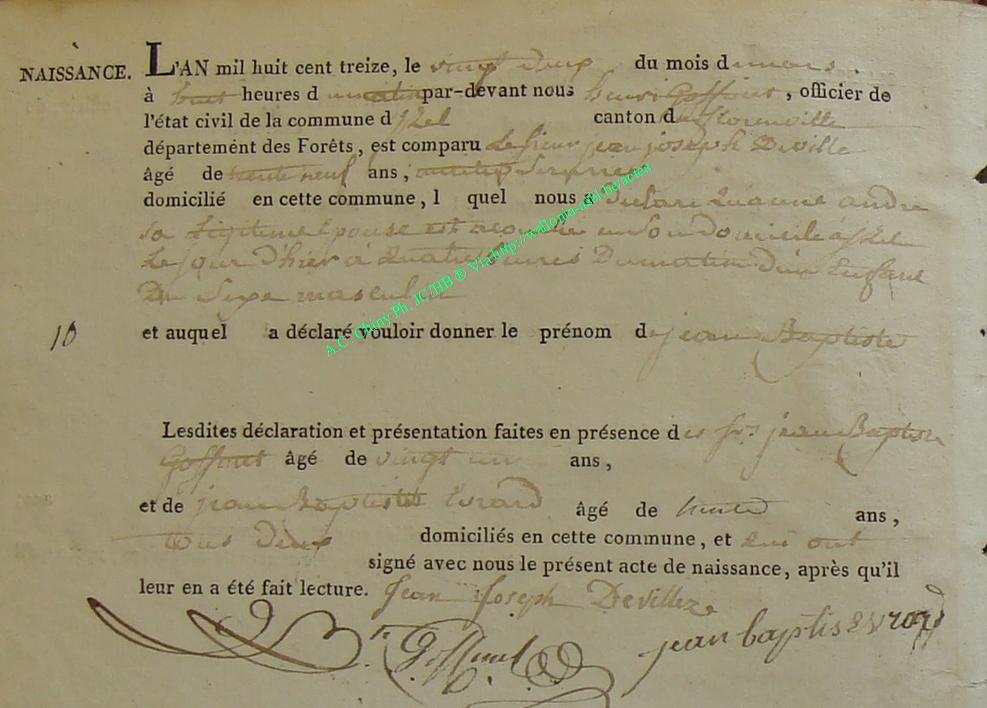 NAISSANCE. L'AN mil huit cent treize, le vingt deux du mois de mars.
à huit heures du matin par-devant nous henri Goffinet, officier de
l'état civil de la commune d'izel canton de florenville
département des Forêts, est comparu Le sieur jean joseph Deville
âgé de trente neuf ans,
domicilié en cette commune, l quel nous a Declaré andre
sa Legitime Epouse est acouchée en son Domicile a izel
Le jour D'hier à quatre heures Du matin D'un Enfant
Du Sexe masculin
10 et auquel a déclaré vouloir donner le prénom de jean Baptiste
Lesdites déclaration et présentation faites en présence des Srs jean Baptiste
Goffinet âgé de vingt un ans,
et de jean Baptiste Evrard âgé de trente ans,
tous Deux domiciliés en cette commune, et qui ont
signé avec nous le présent acte de naissance, après qu'il
leur en a été fait lecture. Jean Joseph Devillez
Goffinet jean baptis evrard
A.C. Chiny Ph. JC/HB ® Via http://wallonia-asbl.be/actes